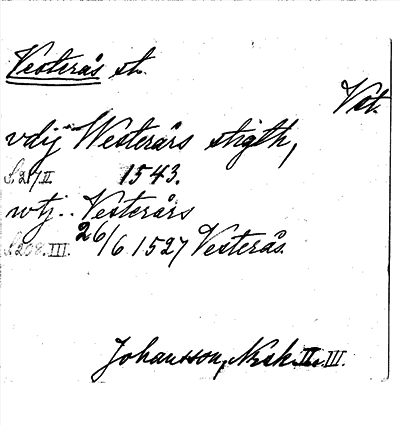 Vesterås st.
Vst.
vdij Westerårs stigth,
S. 217, II 1543.
wtj.. Vesterårs
S. 208. III. 26/6 1527 Vesterås.
Johansson, Nsk. II. III.